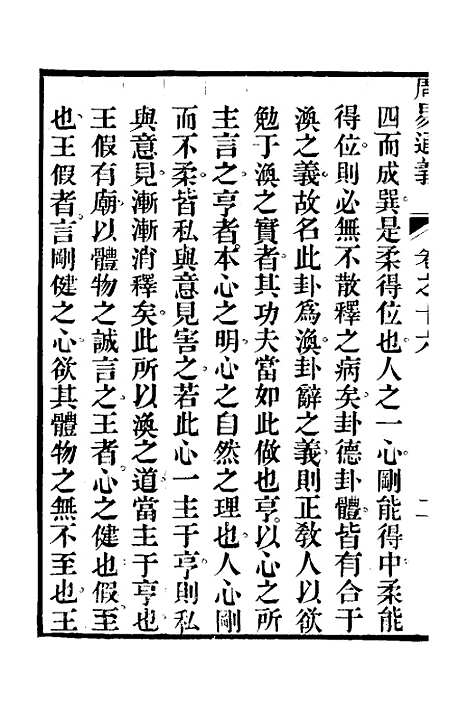 周易通義 卷之十六 二
四而成巽是柔得位也人之一心剛能得中柔能
得位則必無不散釋之病矣卦德卦體皆有合于
渙之義故名此卦爲渙卦辭之義則正敎人以欲
勉于渙之實者其功夫當如此做也亨以心之所
主言之亨者本心之明心之自然之理也人心剛
而不柔皆私與意見害之若此心一主于亨則私
與意見漸漸消釋矣此所以渙之道當主于亨也
王假有廟以體物之誠言之王者心之健也假至
也王假者言剛健之心欲其體物之無不至也王